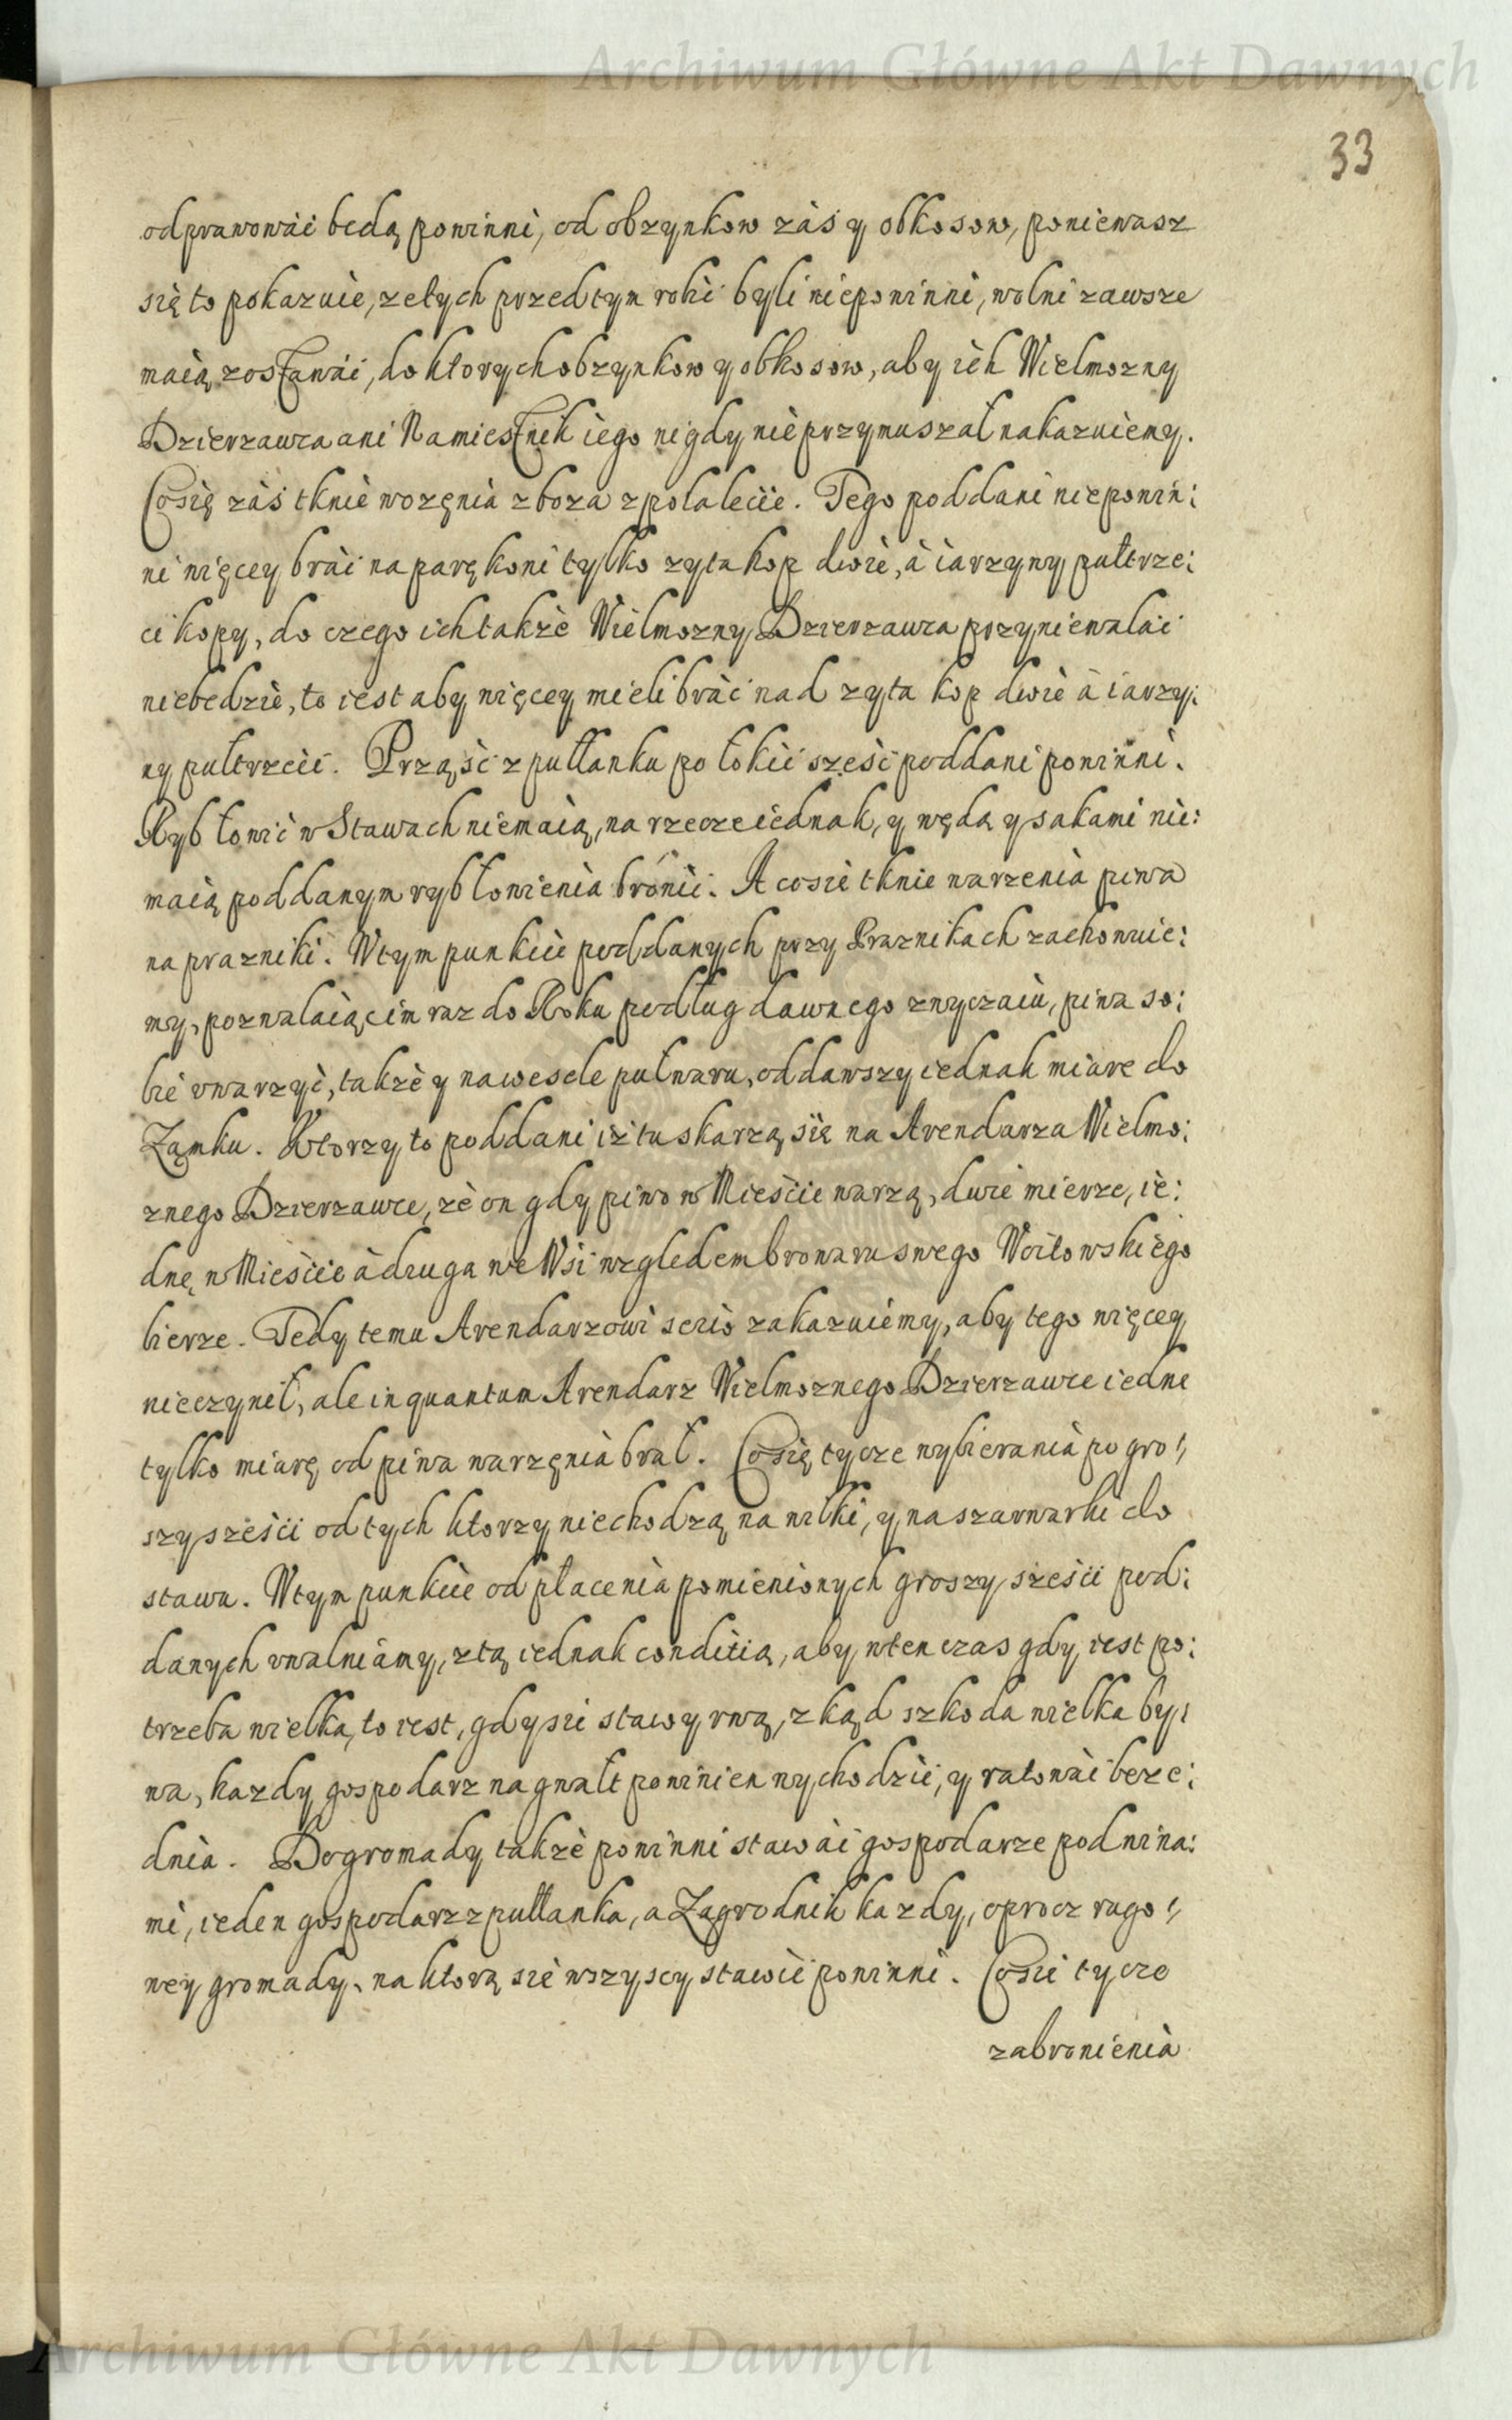 Archiwum Główne Akt Dawnych
33
odprawować będą powinni, od obzynkow zaś y obkosow, poniewasz
się to pokazuie, ze tych przed tym robić byli niepowinni, wolni zawsze
maią zostawać, do ktorych obzynkow y obkosow, aby ich Wielmozny
Dzierzawca ani Namiestnik iego nigdy nie przymuszał nakazuiemy.
Co się zaś tknie wozęnia zboza z pola lecie. Tego poddani niepowin:
ni więcey brać na parę koni tylko zyta kop dwie, a iarzyny pułtrze:
ci kopy, do czego ich także Wielmozny Dzierzawca przyniewalać
niebedzie, to iest aby więcey mieli brać nad zyta kop dwie a iarzy:
ny pułtrzeci. Prząść z pułłanku po łokci sześć poddani powinni.
Ryb łowić w Stawach niemaią, na rzecze iednak, y wędą y sakami nie:
maią poddanym ryb łowienia bronić. A co sie tknie warzenia piwa
na prazniki. W tym punkcie poddanych przy Praznikach zachowuie:
my, pozwalaiąc im raz do Roku podług dawnego zwyczaiu, piwa so:
bie uwarzyć, także y na wesele pułwaru, oddawszy iednak miare do
Zamku. Ktorzy to poddani iż tu skarzą się na Arendarza Wielmo:
znego Dzierzawce, że on gdy piwo w Mieście warzą, dwie mierze, ie:
dnę w Mieście a druga we Wsi względem browaru swego Woitowskiego
bierze. Tedy temu Arendarzowi serio zakazuiemy, aby tego więcey
nieczynił, ale inquantum Arendarz Wielmoznego Dzierzawce iedne
tylko miarę od piwa warzęnia brał. Co się tycze wybierania po gro:
szy sześci od tych ktorzy niechodzą na wilki, y na szarwarki do
stawu. W tym punkcie od płacenia pomienionych groszy sześci pod:
danych uwalniamy, z tą iednak conditią, aby w ten czas gdy iest po:
trzeba wielka, to iest, gdy sie stawy rwą, z kąd szkoda wielka by:
wa, kazdy gospodarz na gwałt powinien wychodzić, y ratować beze:
dnia. Do gromady także powinni stawać gospodarze pod wina:
mi, ieden gospodarz z pułłanka, a Zagrodnik kazdy, oprocz rugo:
wey gromady, na ktorą sie wszyscy stawić powinni. Co sie tycze
zabronienia
Archiwum Główne Akt Dawnych